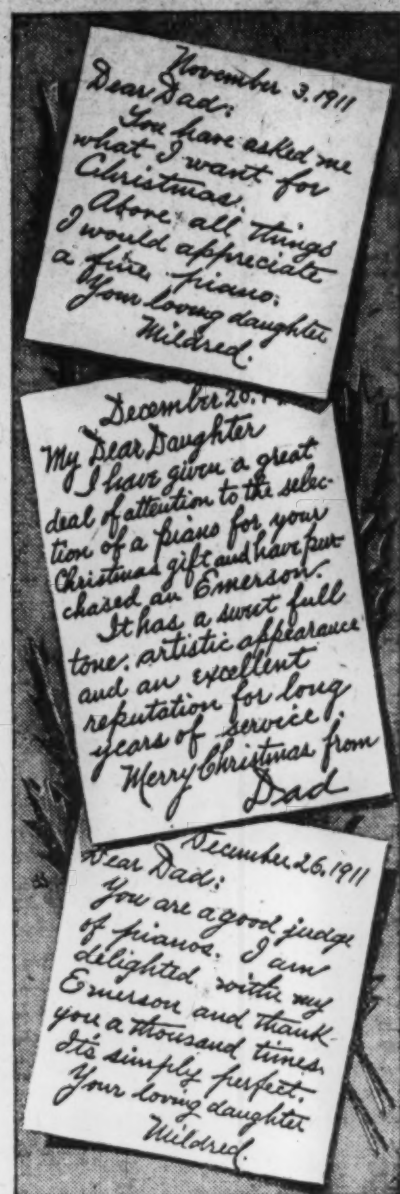 November 3, 1911
Dear Dad:
You have asked me
what I want for
Christmas.
Above all things
I would appreciate
a fine piano.
Your loving daughter
Mildred.
December 20, 1
My Dear Daughter
I have given a great
deal of attention to the selec-
tion of a piano for your
Christmas gift and have pur-
chased an Emerson.
It has a sweet full
tone, artistic appearance
and an excellent
reputation for long
years of service.
Merry Christmas from
Dad
December 26, 1911
Dear Dad:
You are a good judge
of pianos. I am
delighted with my
Emerson and thank
you a thousand times.
It's simply perfect.
Your loving daughter
Mildred.